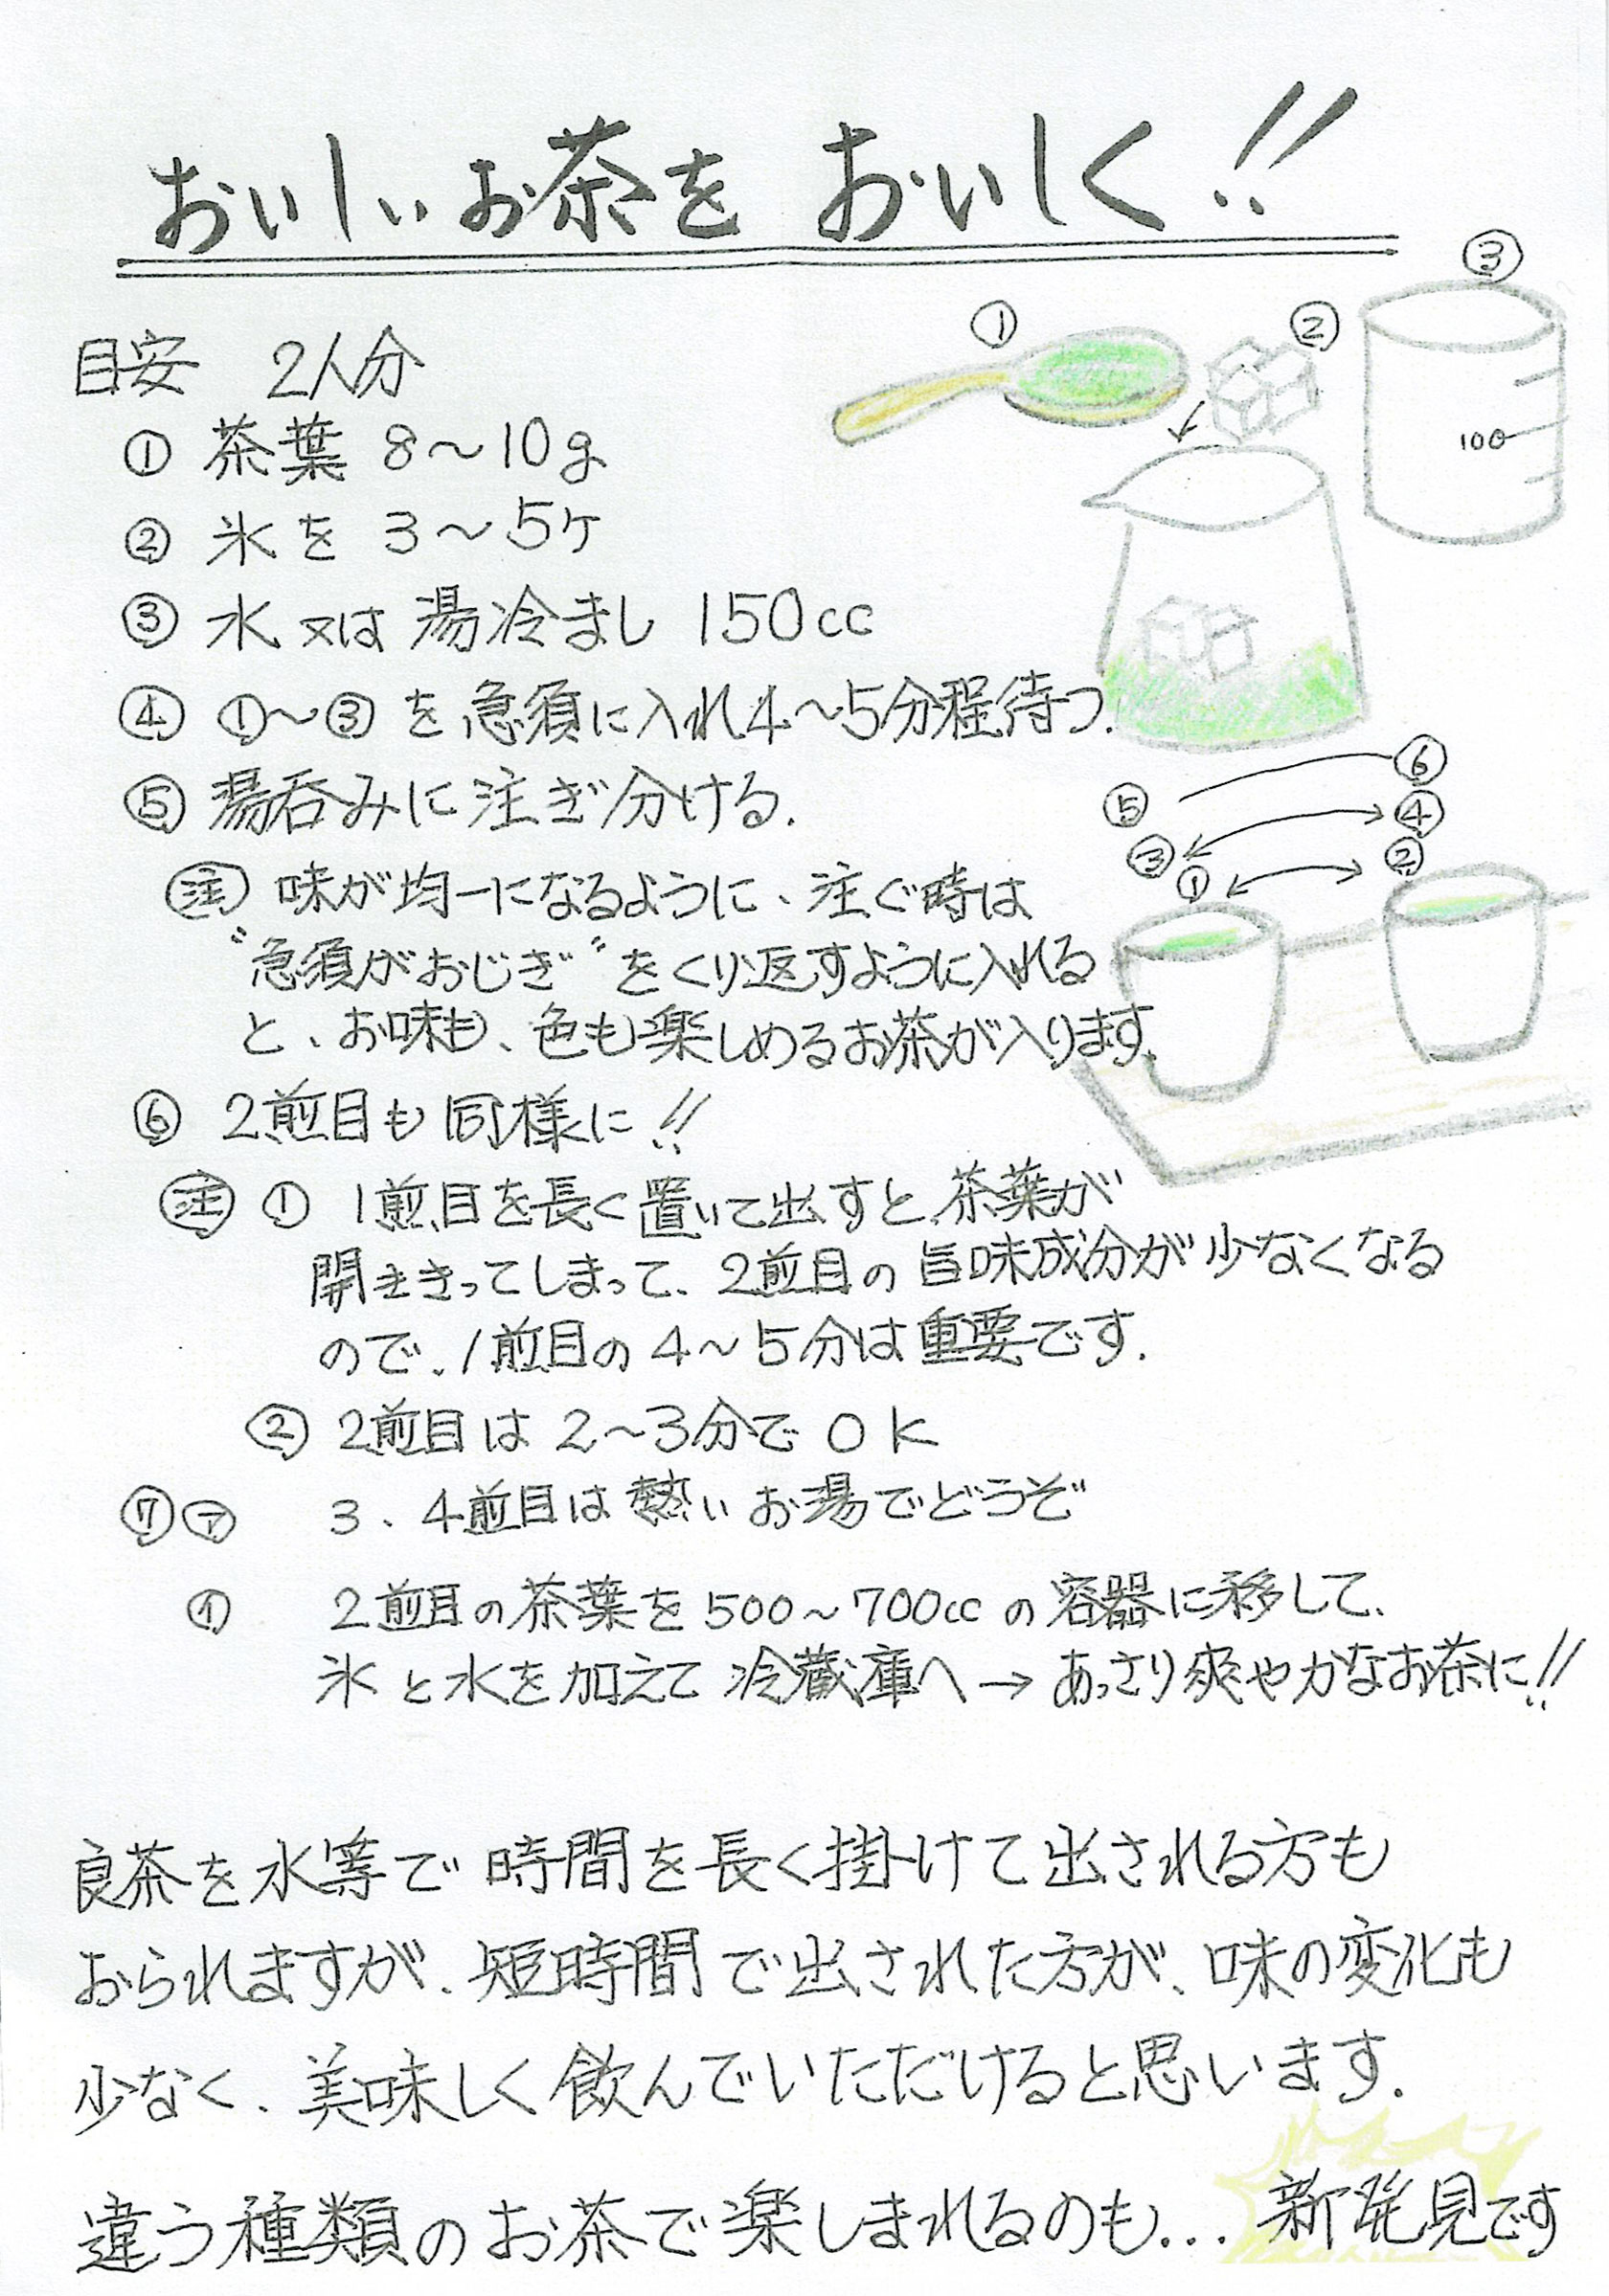 おいしいお茶を おいしく!!
目安 2人分
① 茶葉 8〜10g
② 氷を 3〜5ケ
③ 水 又は 湯冷まし 150cc
④ ①〜③ を 急須に入れ4〜5分程待つ.
⑤ 湯呑みに注ぎ分ける.
注 味が均一になるように、注ぐ時は
"急須がおじぎ"をくり返すように入れる
と、お味も、色も楽しめるお茶が入ります.
⑥ 2煎目も同様に!!
注 ① 1煎目を長く置いて出すと、茶葉が
開ききってしまって、2煎目の旨味成分が少なくなる
ので、1煎目の4〜5分は重要です.
② 2煎目は 2〜3分で OK
⑦ ㋐ 3、4煎目は熱いお湯でどうぞ
㋑ 2煎目の茶葉を500〜700ccの容器に移して、
氷と水を加えて冷蔵庫へ→あっさり爽やかなお茶に!!
良茶を水等で時間を長く掛けて出される方も
おられますが、短時間で出された方が、味の変化も
少なく、美味しく飲んでいただけると思います.
違う種類のお茶で楽しまれるのも... 新発見です
①
②
③
100
⑥
⑤
④
③
②
①